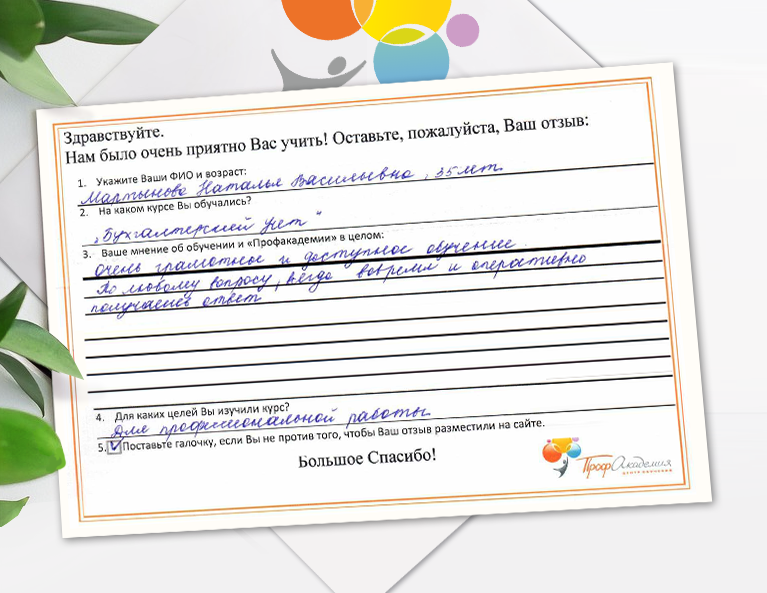 Здравствуйте.
Нам было очень приятно Вас учить! Оставьте, пожалуйста, Ваш отзыв:
1. Укажите Ваши ФИО и возраст:
Мартынова Наталья Васильевна, 35 лет
2. На каком курсе Вы обучались?
"Бухгалтерский учет"
3. Ваше мнение об обучении и «Профакадемии» в целом:
очень грамотное и доступное обучение.
По любому вопросу, всегда вовремя и оперативно
получаешь ответ
4. Для каких целей Вы изучили курс?
Для профессиональной работы
5. Поставьте галочку, если Вы не против того, чтобы Ваш отзыв разместили на сайте.
Большое Спасибо!
ПрофАкадемия
ЦЕНТР ОБУЧЕНИЯ